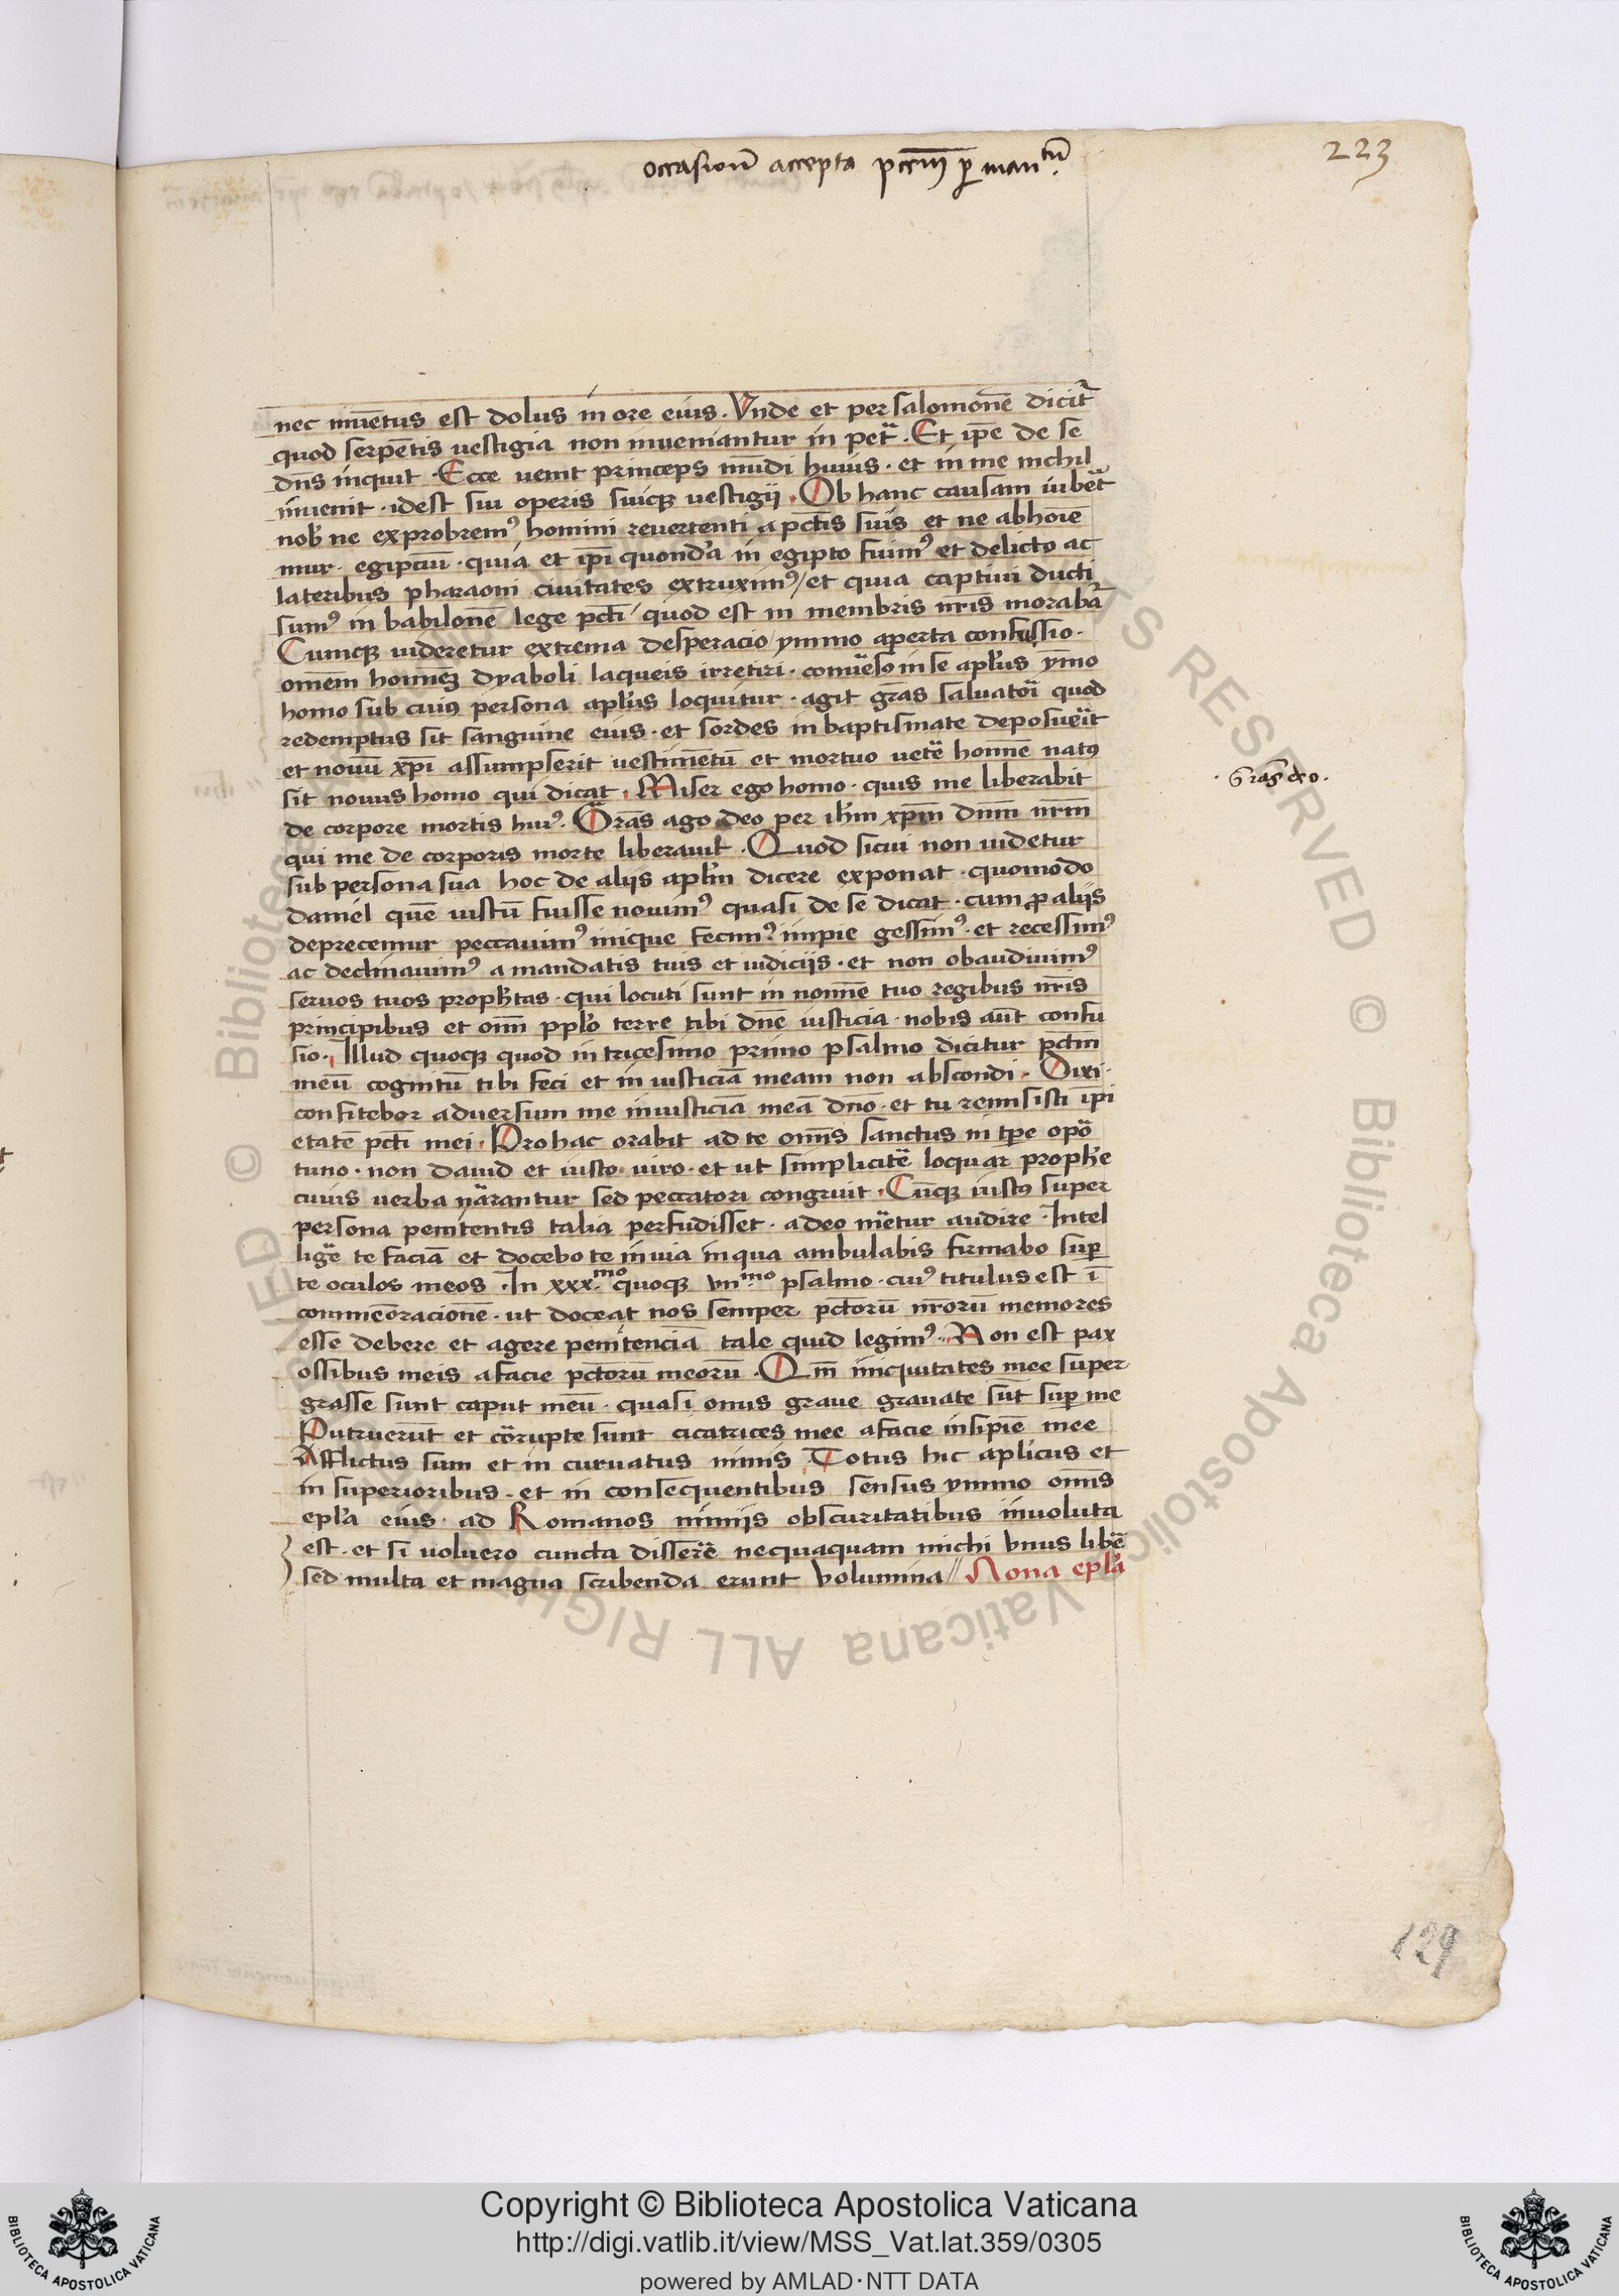 occasionē accepta pctm̄ p man^tū.
223
nec inuētus est dolus in ore eius. Vnde et per salomonē dicit̄
quod serpētis vestigia non inueniantur in pet̄. Et ip̄e de se
dn̄s inquit. Ecce venit princeps mūdi huius. et in me nichil
inuenit. idest sui operis suiqꝫ vestigij. Ob hanc causam iubēt̄
nob̄ ne exprobremꝰ homini reuertenti a pctīs suis et ne abhorē
mur. egipciū. quia et ip̄i quondā in egipto fuimꝰ et de licto ac
lateribus pharaoni ciuitates extruximꝰ / et quia captiui ducti
sumꝰ in babilonē lege pctī / quod est in membris nr̄is morabā
Cumqꝫ uideretur extrema desperacio / ymmo aperta confussio.
omēm hominēꝫ dyaboli laqueis irretiri. conūsꝰ in se apl̄us ȳmo
homo sub cuius persona apl̄us loquitur. agit grās saluatori quod
redemptus sit sanguine eius. et sordes in baptismate deposuerit
et nouū xp̄i assumpserit uestimētū et mortuo uetē homine natꝰ
sit nouus homo qui dicat. Miser ego homo. quis me liberabit
. Grās deo.
de corpore mortis huiꝰ. Grās ago deo per ih̄m xp̄m dn̄m nr̄m
qui me de corporis morte liberauit. Quod sicui non uidetur
sub persona sua hoc de alijs apl̄m dicere exponat. quomodo
daniel quē iustū fuisse nouimꝰ quasi de se dicat. cum ꝓ alijs
deprecemur peccauimꝰ inique fecimꝰ. impie gessimꝰ. et recessimꝰ
ac declinauimꝰ a mandatis tuis et iudicijs. et non obaudiuimꝰ
seruos tuos proph̄tas. qui locuti sunt in nomine tuo regibus nr̄is
principibus et om̄i pplo terre tibi dn̄e iusticia. nobis aūt confu
sio. Illud quoqꝫ quod in tricesimo primo psalmo dicitur pctm̄
meū cognitū tibi feci et in iusticiā meam non abscondi. Dixi.
confitebor aduersum me iniusticiā meā dn̄o. et tu remisisti ip̄i
etatē pctī mei. Pro hac orabit ad te om̄is sanctus in tp̄e opō
tuno. non dauid et iusto uiro. et ut simplicitē loquar proph̄e
cuius uerba nārantur sed peccatori congruit. Cūqꝫ iustꝰ super
persona penitentis talia perfudisset. a deo mētur audire. Intel
ligē te faciā et docebo te in uia in qua ambulabis firmabo sup̄
te oculos meos. In xxx^mo quoqꝫ vii^mo psalmo. cuiꝰ titulus est ī
commēoracionē. ut doceat nos semper pctorū nr̄orū memores
esse debere et agere penitenciā tale quid legimꝰ. Non est pax
ossibus meis a facie pctorū meorū. Qm̄ iniquitates mee super
grasse sunt caput meū. quasi onus graue grauate sūt sup̄ me
Putruerūt et cōrupte sunt cicatrices mee a facie insipiē mee
Afflictus sum et in curuatus nimis Totus hic aplicus et
in superioribus. et in consequentibus sensus ymmo om̄is
epl̄a eius. ad Romanos nimijs obscuritatibus inuoluta
est. et si uoluero cuncta disserē nequaquam michi vnus libē
sed multa et magna scribenda erunt volumina // Nona epl̄a
129
Copyright © Biblioteca Apostolica Vaticana
http://digi.vatlib.it/view/MSS_Vat.lat.359/0305
powered by AMLAD·NTT DATA